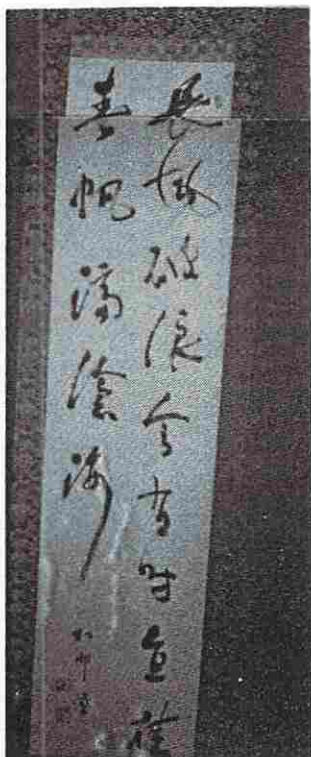 長風破浪會有時直挂
雲帆濟滄海